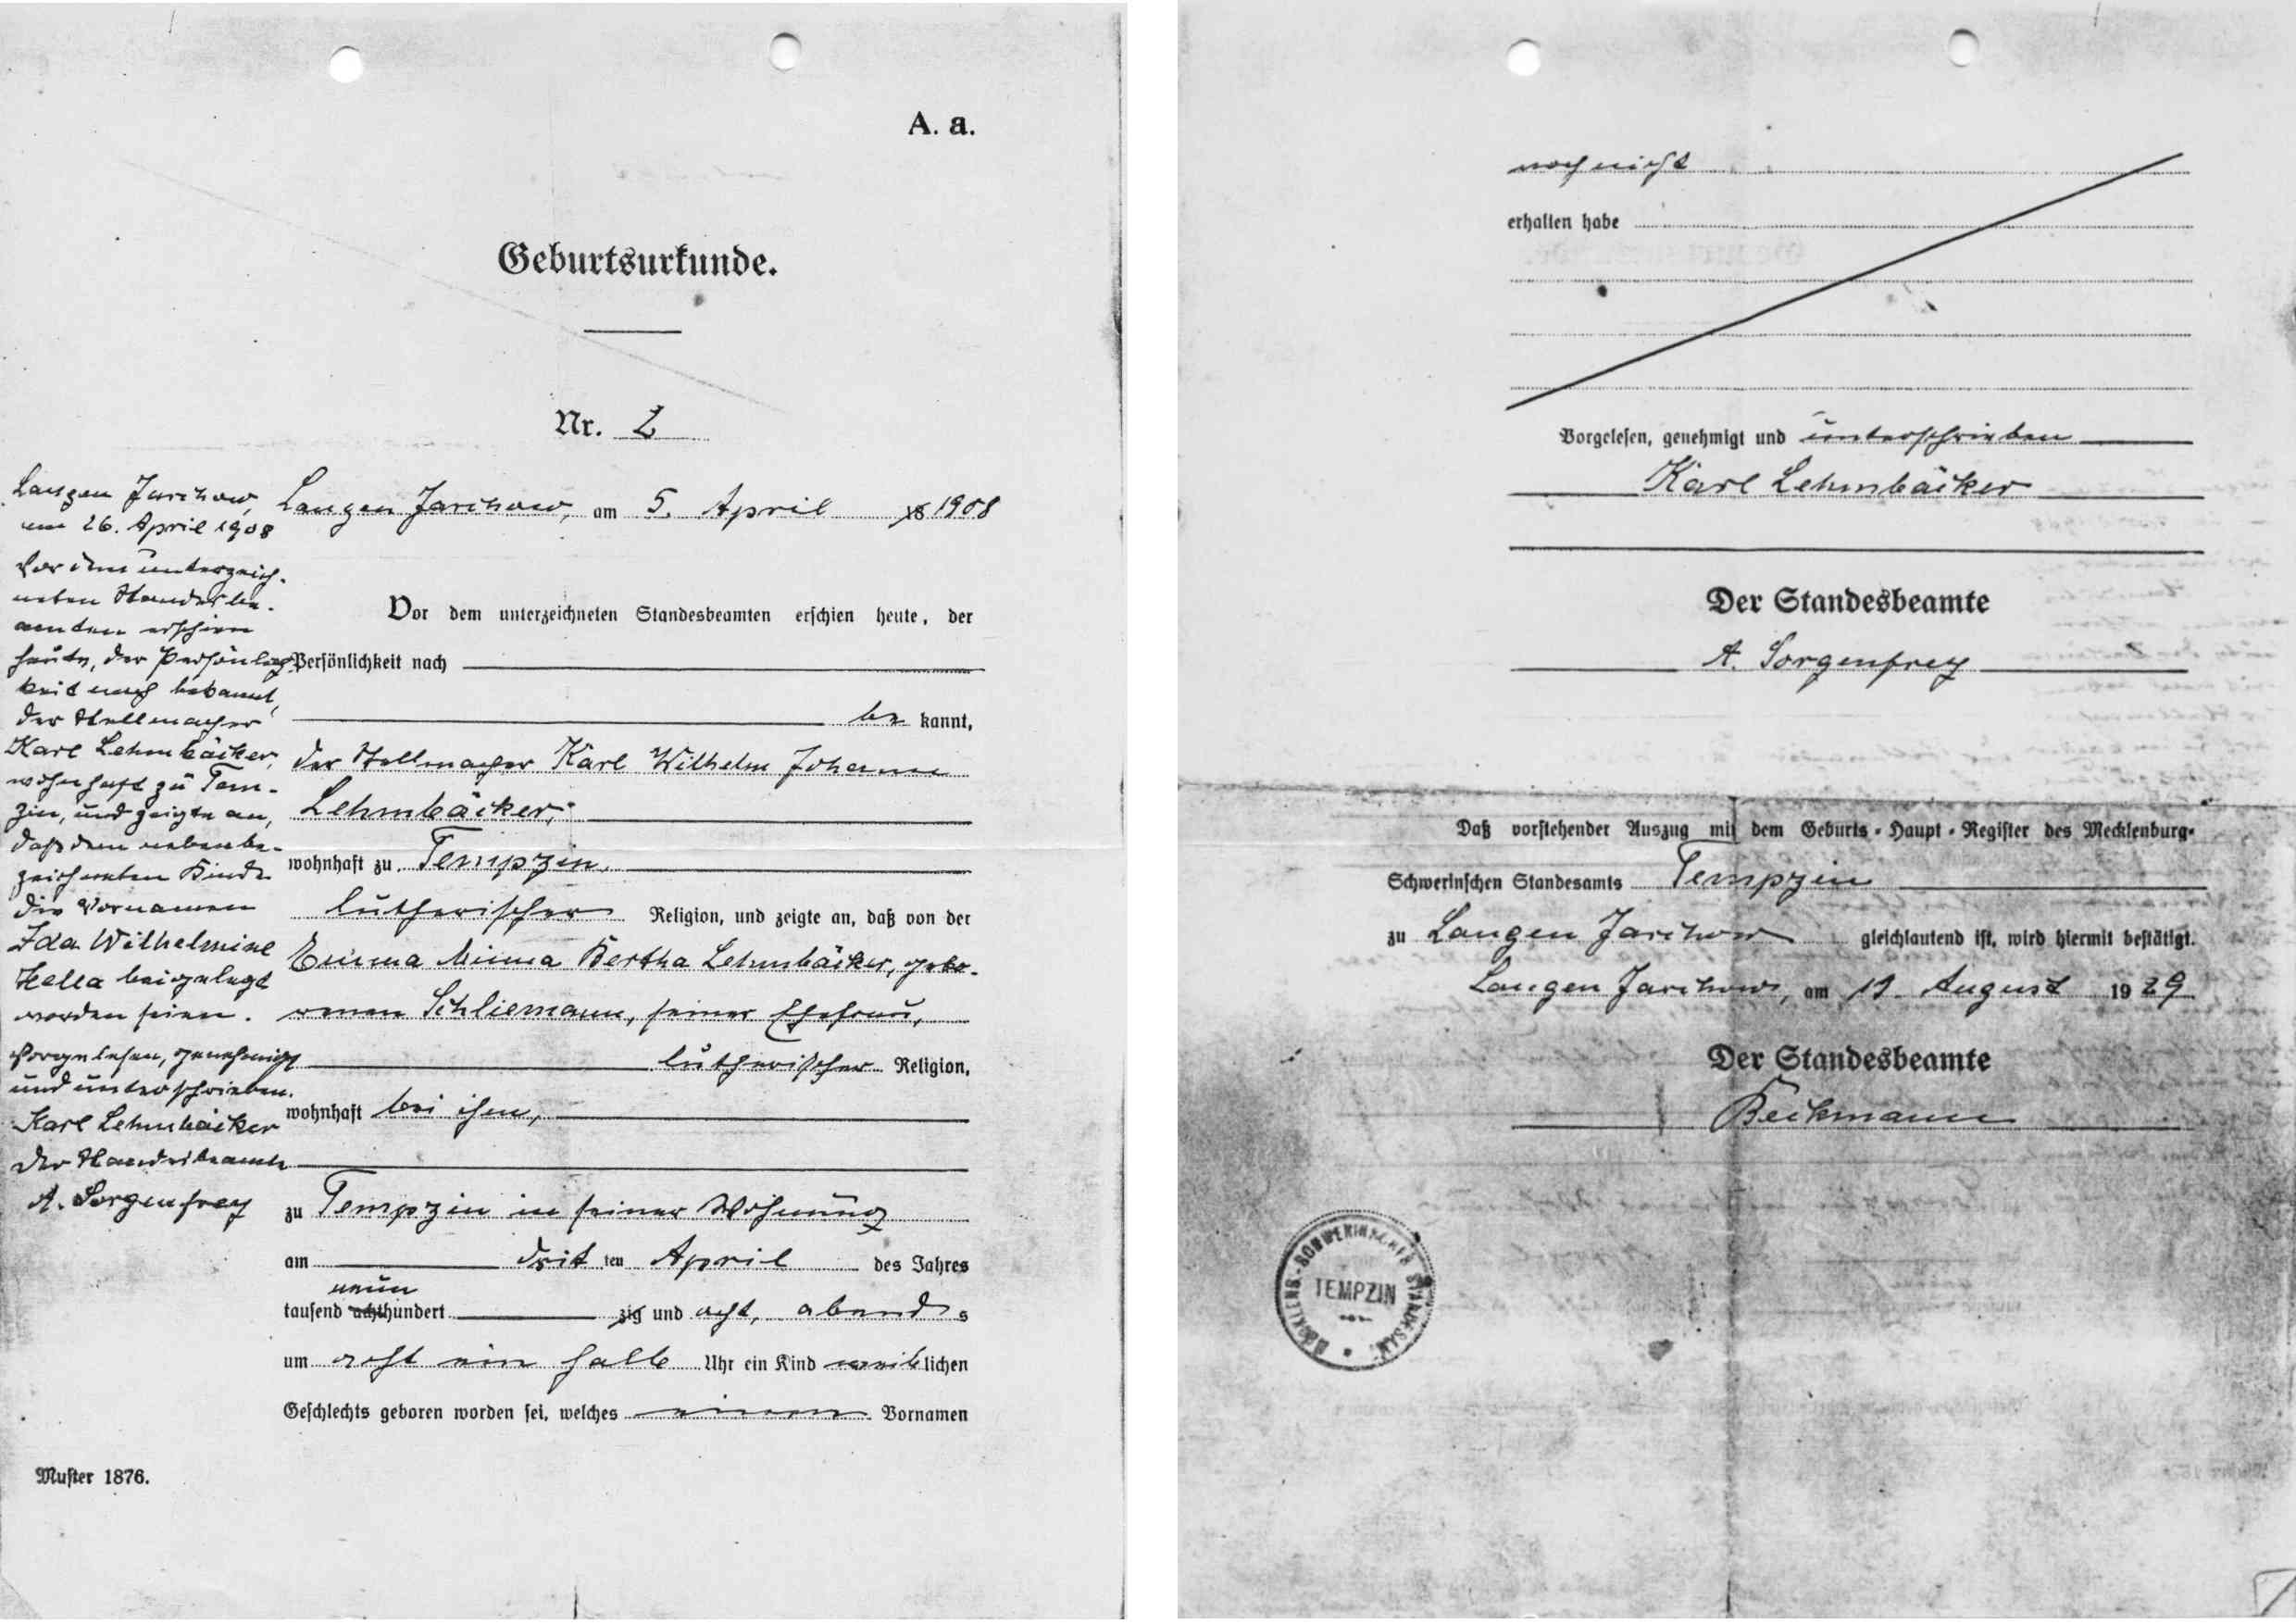 A. a.
Geburtsurkunde.
Nr. 2
Langen Jarchow, am 5. April 18 1908
Vor dem unterzeichneten Standesbeamten erschien heute, der
Persönlichkeit nach
be kannt,
der Stellmacher Karl Wilhelm Johann
Lehmbäcker,
wohnhaft zu Tempzin,
lutherischer Religion, und zeigte an, daß von der
Emma Minna Bertha Lehmbäcker, gebo-
renen Schliemann, seiner Ehefrau,
lutherischer Religion,
wohnhaft bei ihm,
zu Tempzin in seiner Wohnung
am drit ten April des Jahres
neun
tausend achthundert zig und acht, abend s
um acht ein halb Uhr ein Kind weiblichen
Geschlechts geboren worden sei, welches einen Vornamen
Muster 1876.
Langen Jarchow,
am 26. April 1908
Vor dem unterzeich-
neten Standesbe-
amten erschien
heute, der Persönlich-
keit nach bekannt,
der Stellmacher
Karl Lehmbäcker,
wohnhaft zu Tem-
zin, und zeigte an,
daß dem nebenbe-
zeichneten Kinde
die Vornamen
Ida Wilhelmine
Hella beigelegt
worden seien.
Vorgelesen, genehmigt
und unterschrieben.
Karl Lehmbäcker
Der Standesbeamte
A. Sorgenfrey
noch nicht
erhalten habe
Vorgelesen, genehmigt und unterschrieben
Karl Lehmbäcker
Der Standesbeamte
A. Sorgenfrey
Daß vorstehender Auszug mit dem Geburts-Haupt-Register des Mecklenburg-
Schwerinschen Standesamts Tempzin
zu Langen Jarchow gleichlautend ist, wird hiermit bestätigt.
Langen Jarchow, am August 1929
Der Standesbeamte
Beckmann
MECKLENB.-SCHWERINSCHES STANDESAMT
TEMPZIN